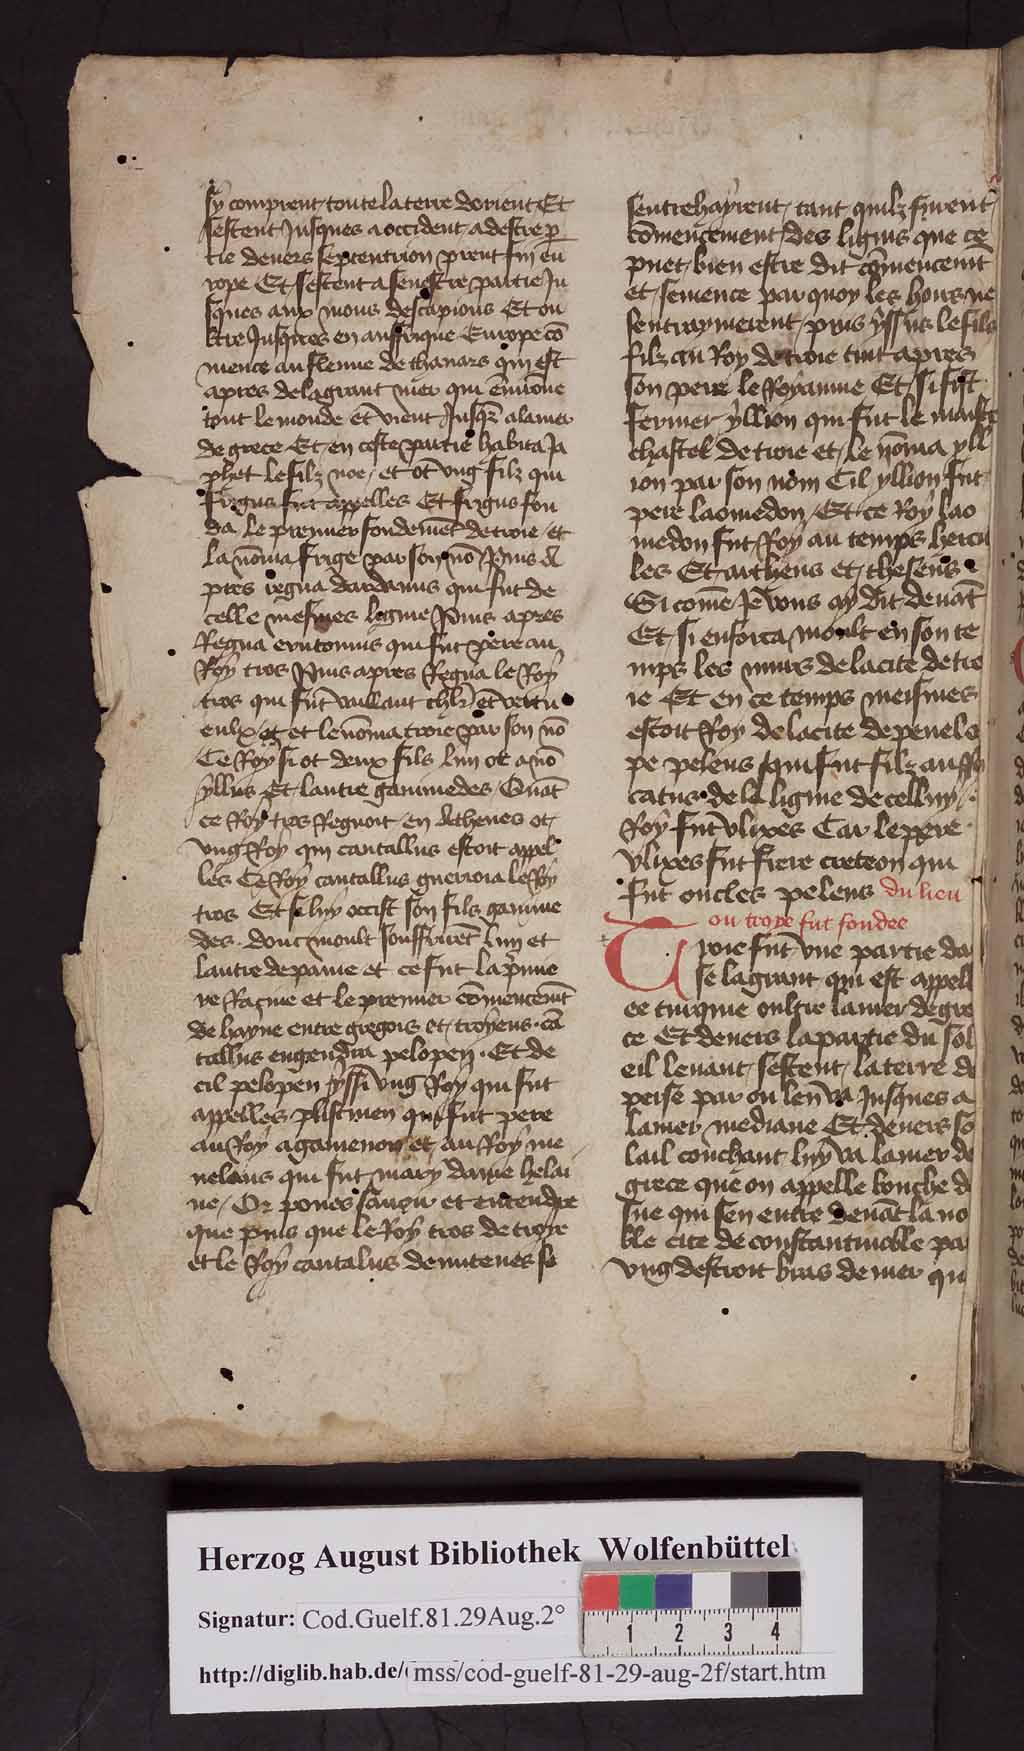 sy comprent toute la terre dorient Et
sestent Jusques a occident a destre p̲
tie deuers septentrion prent fin eu
rope Et sestent a senestre partie Ju
sques aux mons descapions Et ou
ltre Jusques en auffrique Europe cō
mence au fleuue de thanars qui est
apres de la grant mer qui enuirōne
tout le monde et vient Jusqz a la mer
de grece Et en ceste partie habita Ja
phet le filz noe et ot vng filz qui
frigus fut appelles Et frigus fon
da le premier fondemēt de troie et
la nōma frige par son nō Puis a
pres regna dardanus qui fut de
celle mesmes lignie Puis apres
Regna eritonius qui fut pere au
Roy tros Puis apres Regna le Roy
tros qui fut vaillant chlr et vertu
eulx et et le nōma troie par son nō
Ce Roy si ot deux fils lun ot a nō
yllus Et lautre ganimedes Quāt
ce Roy tros Regnoit en Athenes ot
vng Roy qui cantallus estoit appel
les Ce Roy cantallus guerroia le Roy
tros Et se luy occist son fils ganime
des donc moult souffrirēt lun et
lautre de paine et ce fut la p̄mie
re Racine et le premier cōmencemt
de hayne entre gregois et troyens cā
tallus engendra pelopen Et de
cil pelopen yssi vng Roy qui fut
appelles plistinen qui fut pere
au Roy agamenon et au Roy me
nelaus qui fut mary dame helai
ne Or poues sauoir et entendre
que puis que le Roy tros de troye
et le Roy cantalus demutenes se
sentrehayrent tant quilz firent
cōmencement des lignis que ce
puet bien estre dit cōmencemt
et semence par quoy les hoirs ne
sentraymerent puis yssus le filz
filz au Roy de troie tint apres
son pere le Royaume Et si fist
fermer yllion qui fut le maistre
chastel de troie et le nōma yll
ion par son nom Cil yllion fut
pere laomedon Et ce Roy lao
medon fut Roy au temps hercu
les Et arthens et theseus
Si comē Je vous ay dit deuāt
Et si enforca moult en son te
mps les murs de la cite de tro
ie Et en ce temps meismes
estoit Roy de la cite de penelo
pe peleus qui fut filz au Ro
catus de la lignie de celluy
Roy fut vlixes Car le pere
vlixes fut frere creteon qui
fut oncles peleus du lieu
ou troye fut fondee
Troie fut vne partie da
se la grant qui est appell
ee turquie oultre la mer de gre
ce Et deuers la partie du sol
eil leuant sestent la terre de
perse par ou len va Jusques a
la mer mediane Et deuers so
lail couchant luy va la mer de
grece que on appelle bouche d
sue qui sen entre deuāt la no
ble cite de constantinoble pa
vng destroit bras de mer qu
Herzog August Bibliothek Wolfenbüttel
Signatur: Cod.Guelf.81.29Aug.2°
http://diglib.hab.de/mss/cod-guelf-81-29-aug-2f/start.htm
1 2 3 4